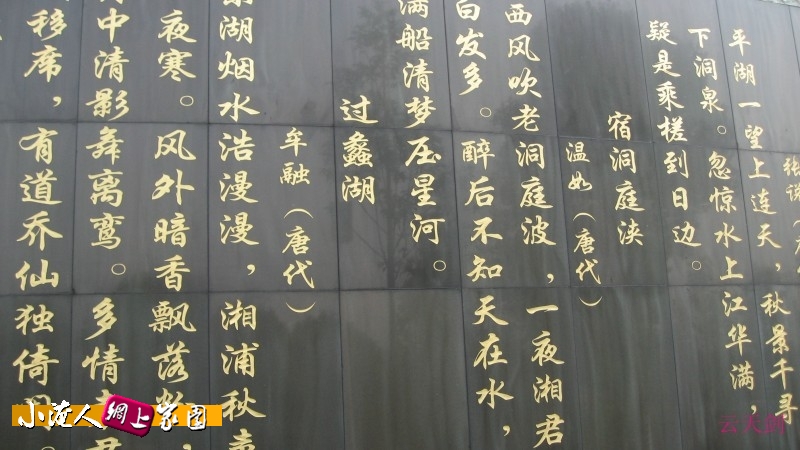 张说（
平湖一望上连天，秋景千寻
下洞泉。忽惊水上江华满，
疑是乘槎到日边。
宿洞庭浃
温如（唐代）
西风吹老洞庭波，一夜湘君
白发多。醉后不知天在水，
满船清梦压星河。
过蠡湖
牟融（唐代）
湖烟水浩漫漫，湘浦秋声
夜寒。风外暗香飘落
中清影舞离鸾。多情 君
移席，有道乔仙独倚
小渔人网上家园